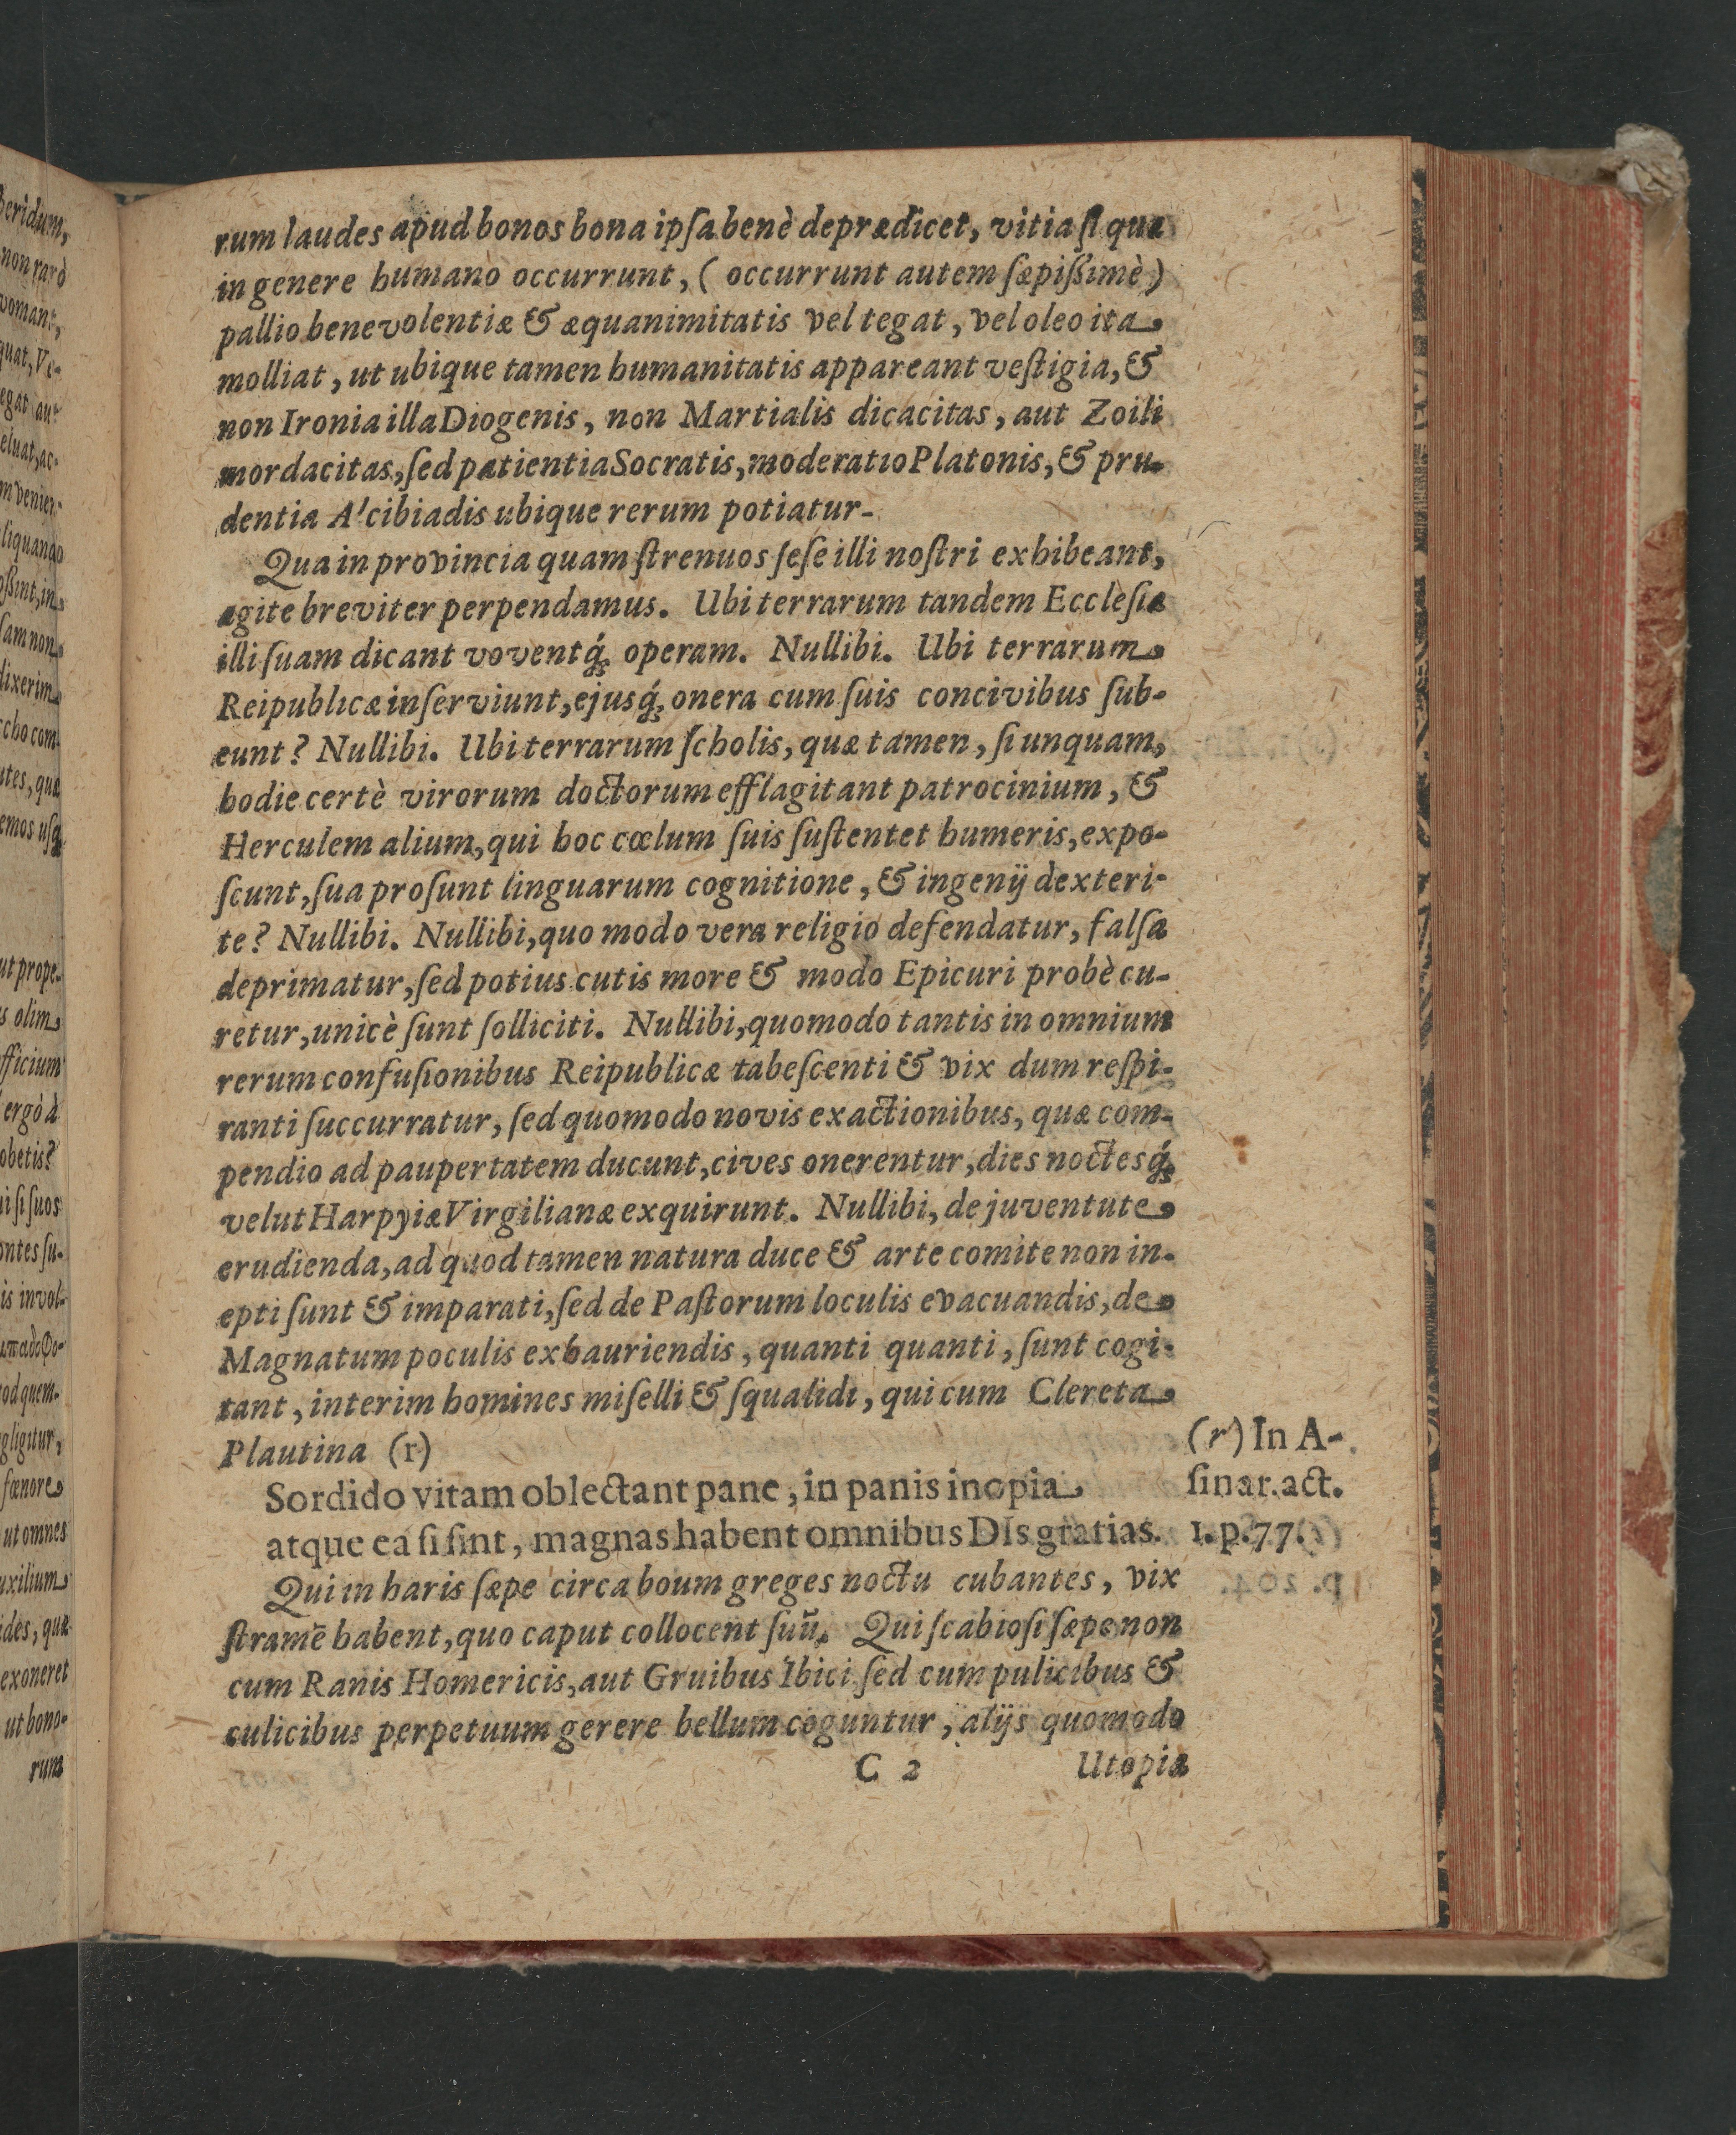 rum laudes apud bonos bona ipſa benè deprædicet, vitia ſi qua
in genere humano occurrunt, (occurrunt autem ſæpißimè)
pallio benevolentiæ & æquanimitatis vel tegat, vel oleo ita
molliat, ut ubique tamen humanitatis appareant veſtigia, &
non Ironia illa Diogenis, non Martialis dicacitas, aut Zoili
mordacitas, ſed patientia Socratis, moderatio Platonis, & pru-
dentia Alcibiadis ubique rerum potiatur.
Qua in provincia quam ſtrenuos ſeſe illi noſtri exhibeant,
agite breviter perpendamus. Ubi terrarum tandem Eccleſiæ
illi ſuam dicant voventq́ꝫ operam. Nullibi. Ubi terrarum
Reipublicæ inſerviunt, ejusq́ꝫ onera cum ſuis concivibus ſub-
eunt? Nullibi. Ubi terrarum ſcholis, quæ tamen, ſi unquam,
hodie certè virorum doctorum efflagitant patrocinium, &
Herculem alium, qui hoc cœlum ſuis ſuſtentet humeris, expo-
ſcunt, ſua proſunt linguarum cognitione, & ingenij dexteri-
te? Nullibi. Nullibi, quo modo vera religio defendatur, falſa
deprimatur, ſed potius cutis more & modo Epicuri probè cu-
retur, unicè ſunt ſolliciti. Nullibi, quomodo tantis in omnium
rerum confuſionibus Reipublicæ tabeſcenti & vix dum reſpi-
ranti ſuccurratur, ſed quomodo novis exactionibus, quæ com-
pendio ad paupertatem ducunt, cives onerentur, dies noctesq́ꝫ
velut Harpyiæ Virgilianæ exquirunt. Nullibi, de juventute
erudienda, ad quod tamen natura duce & arte comite non in-
epti ſunt & imparati, ſed de Paſtorum loculis evacuandis, de
Magnatum poculis exhauriendis, quanti quanti, ſunt cogi-
tant, interim homines miſelli & ſqualidi, qui cum Clereta
Plautina (r)
(r) In A-
ſinar. act.
1. p. 77.
Sordido vitam oblectant pane, in panis inopia
atque ea ſi ſint, magnas habent omnibus DIs gratias.
Qui in haris ſæpe circa boum greges noctu cubantes, vix
ſtramē habent, quo caput collocent ſuū. Qui ſcabioſi ſæpe non
cum Ranis Homericis, aut Gruibus Ibici ſed cum pulicibus &
culicibus perpetuum gerere bellum coguntur, alijs quomodo
C 2 Utopiæ